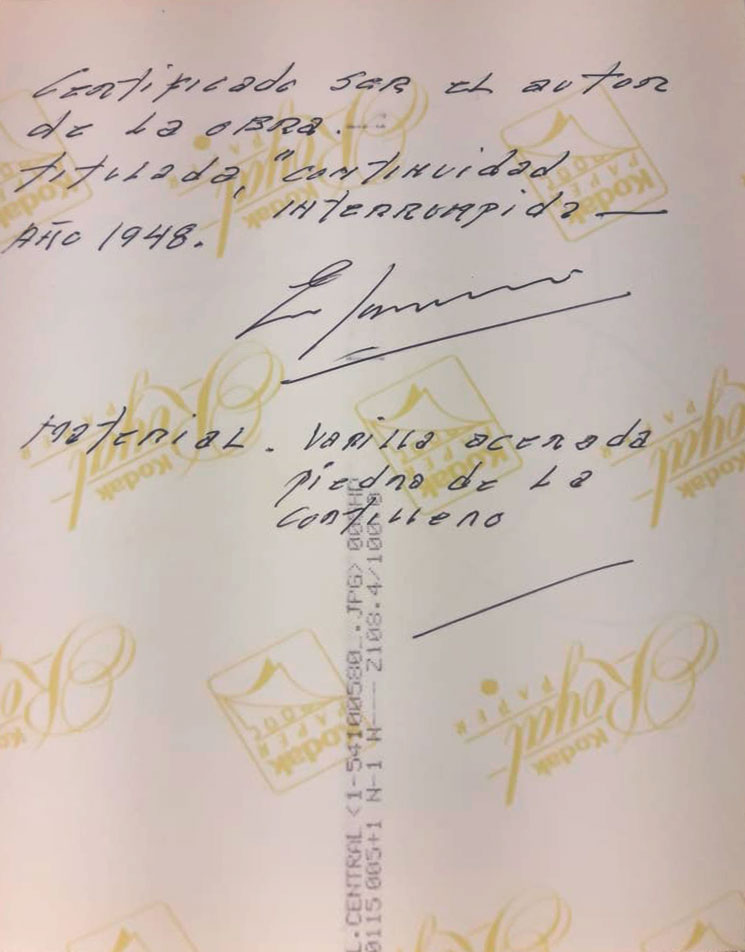 Certificado ser el autor
de la obra.
titulada, "Continuidad
interrumpida
Año 1948.
Material. Varilla acerada
piedra de la
Cortillera
L.CENTRAL <1-54100580_.JPG> 00
0115 005+1 N-1 H---- 2108.4/100
Kodak
Royal
PAPER